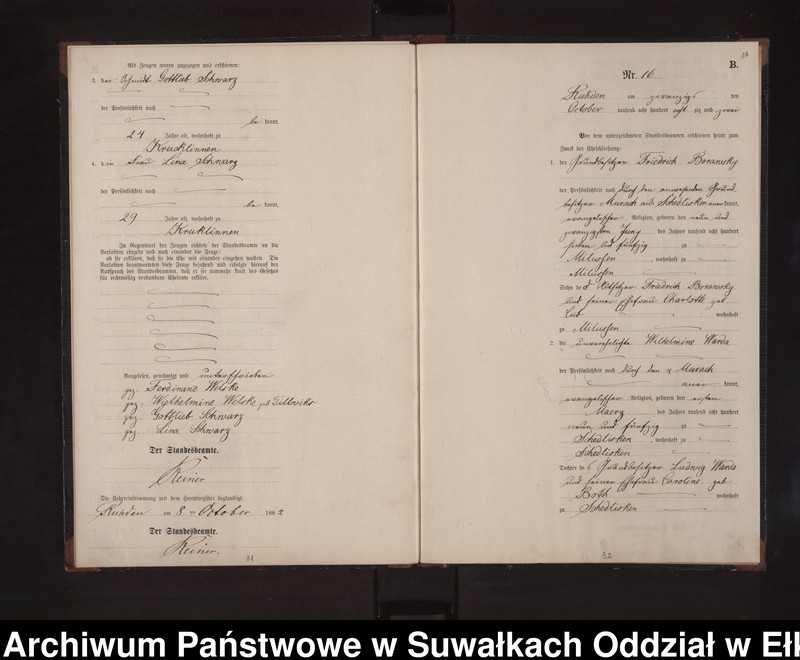 Als Zeugen waren zugezogen und erschienen:
3. der Schmidt Gottlieb Schwarz
der Persönlichkeit nach
be kannt,
24 Jahre alt, wohnhaft zu
Kruklinnen
4. die Frau Lina Schwarz
der Persönlichkeit nach
be kannt,
29 Jahre alt, wohnhaft zu
Kruklinnen
In Gegenwart der Zeugen richtete der Standesbeamte an die
Verlobten einzeln und nach einander die Frage:
ob sie erklären, daß sie die Ehe mit einander eingehen wollen. Die
Verlobten beantworteten diese Frage bejahend und erfolgte hierauf der
Ausspruch des Standesbeamten, daß er sie nunmehr kraft des Gesetzes
für rechtmäßig verbundene Eheleute erkläre.
Vorgelesen, genehmigt und unterschrieben
gez. Ferdinand Welske
gez. Wilhelmine Welske geb
gez. Gottlieb Schwarz
gez. Lina Schwarz
Der Standesbeamte.
Reiner
Die Uebereinstimmung mit dem Hauptregister beglaubigt
am 8 ten October 1882
Der Standesbeamte.
Reiner.
31
B.
Nr. 16
am zwanzigs ten
October tausend acht hundert acht zig und zwei
Vor dem unterzeichneten Standesbeamten erschienen heute zum
Zweck der Eheschließung:
1. der Grundbesitzer Friedrich Boranosky
der Persönlichkeit nach durch den anwesenden Grund-
besitzer Murach aus Schedlisken aner kannt,
evangelischer Religion, geboren den neun und
zwanzigsten Juny des Jahres tausend acht hundert
sieben und fünfzig zu
Milussen, wohnhaft zu
Milussen
Sohn des Friedrich Boranosky
und seiner Ehefrau Charlotte geb
wohnhaft
zu Milussen
2. die unverehelichte Wilhelmine Warda
der Persönlichkeit nach durch den Murach
aner kannt,
evangelischer Religion, geboren den ersten
Maerz des Jahres tausend acht hundert
neun und fünfzig zu
Schedlisken, wohnhaft zu
Schedlisken
Tochter des Grundbesitzer Ludwig Warda
und seiner Ehefrau Caroline geb
Both wohnhaft
zu Schedlisken
32
Archiwum Państwowe w Suwałkach Oddział w Ełk